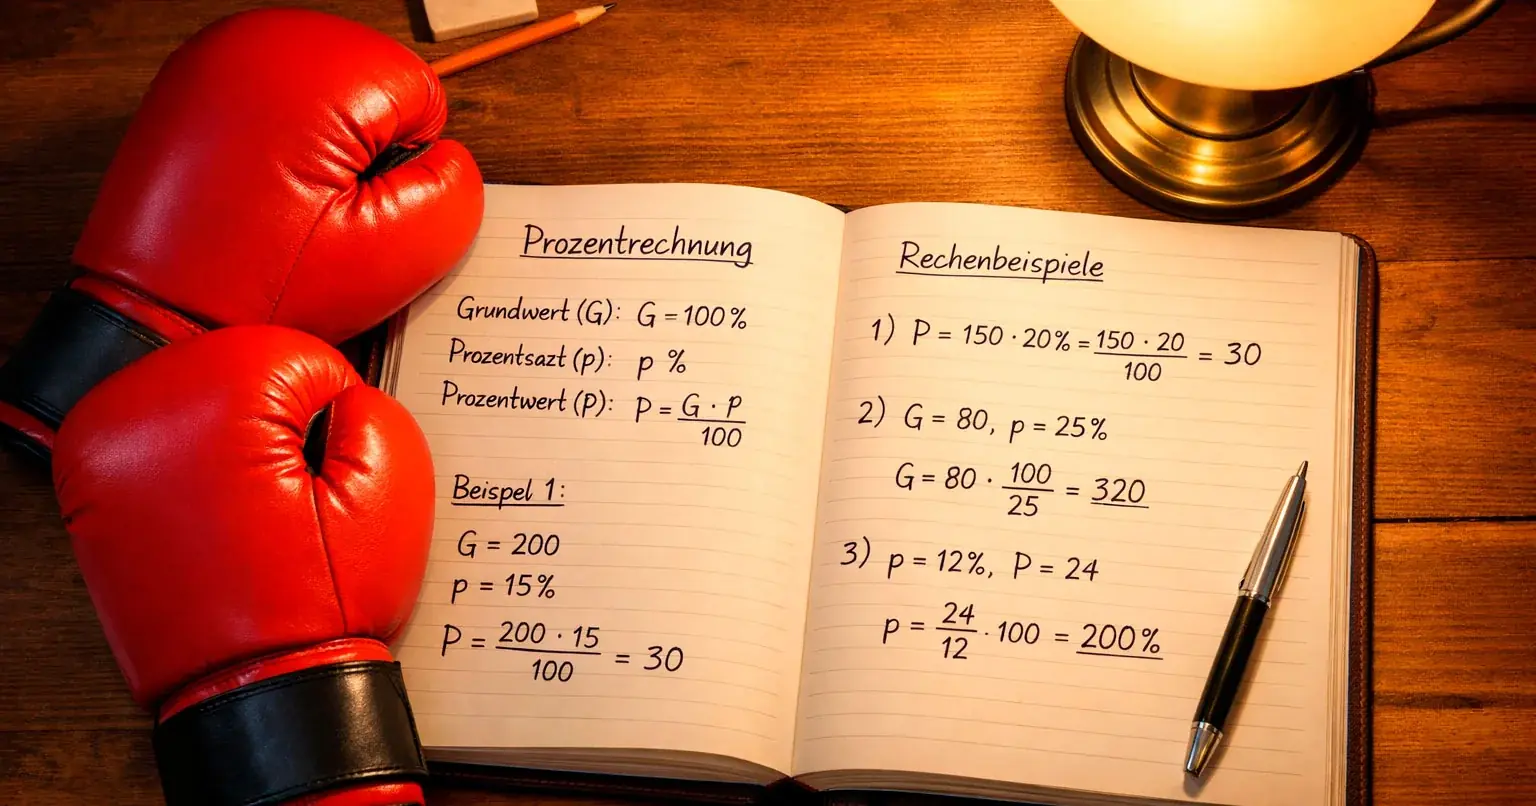 Prozentrechnung
Grundwert (G): G = 100%
Prozentsazt (p): p %
Prozentwert (P): P = G · p / 100
Beispel 1:
G = 200
p = 15%
P = 200 · 15 / 100 = 30
Rechenbeispiele
1) P = 150 · 20% = 150 · 20 / 100 = 30
2) G = 80, p = 25%
G = 80 · 100 / 25 = 320
3) p = 12%, P = 24
p = 24 / 12 · 100 = 200%